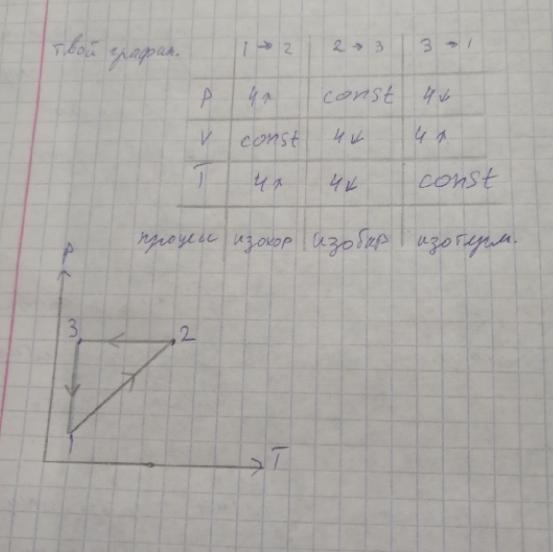 твой график. 1→2 2→3 3→1
P 4↗ const 4↙
V const 4↙ 4↗
T 4↗ 4↙ const
процесс изохор изобар изотерм.
P
3 2
1
T